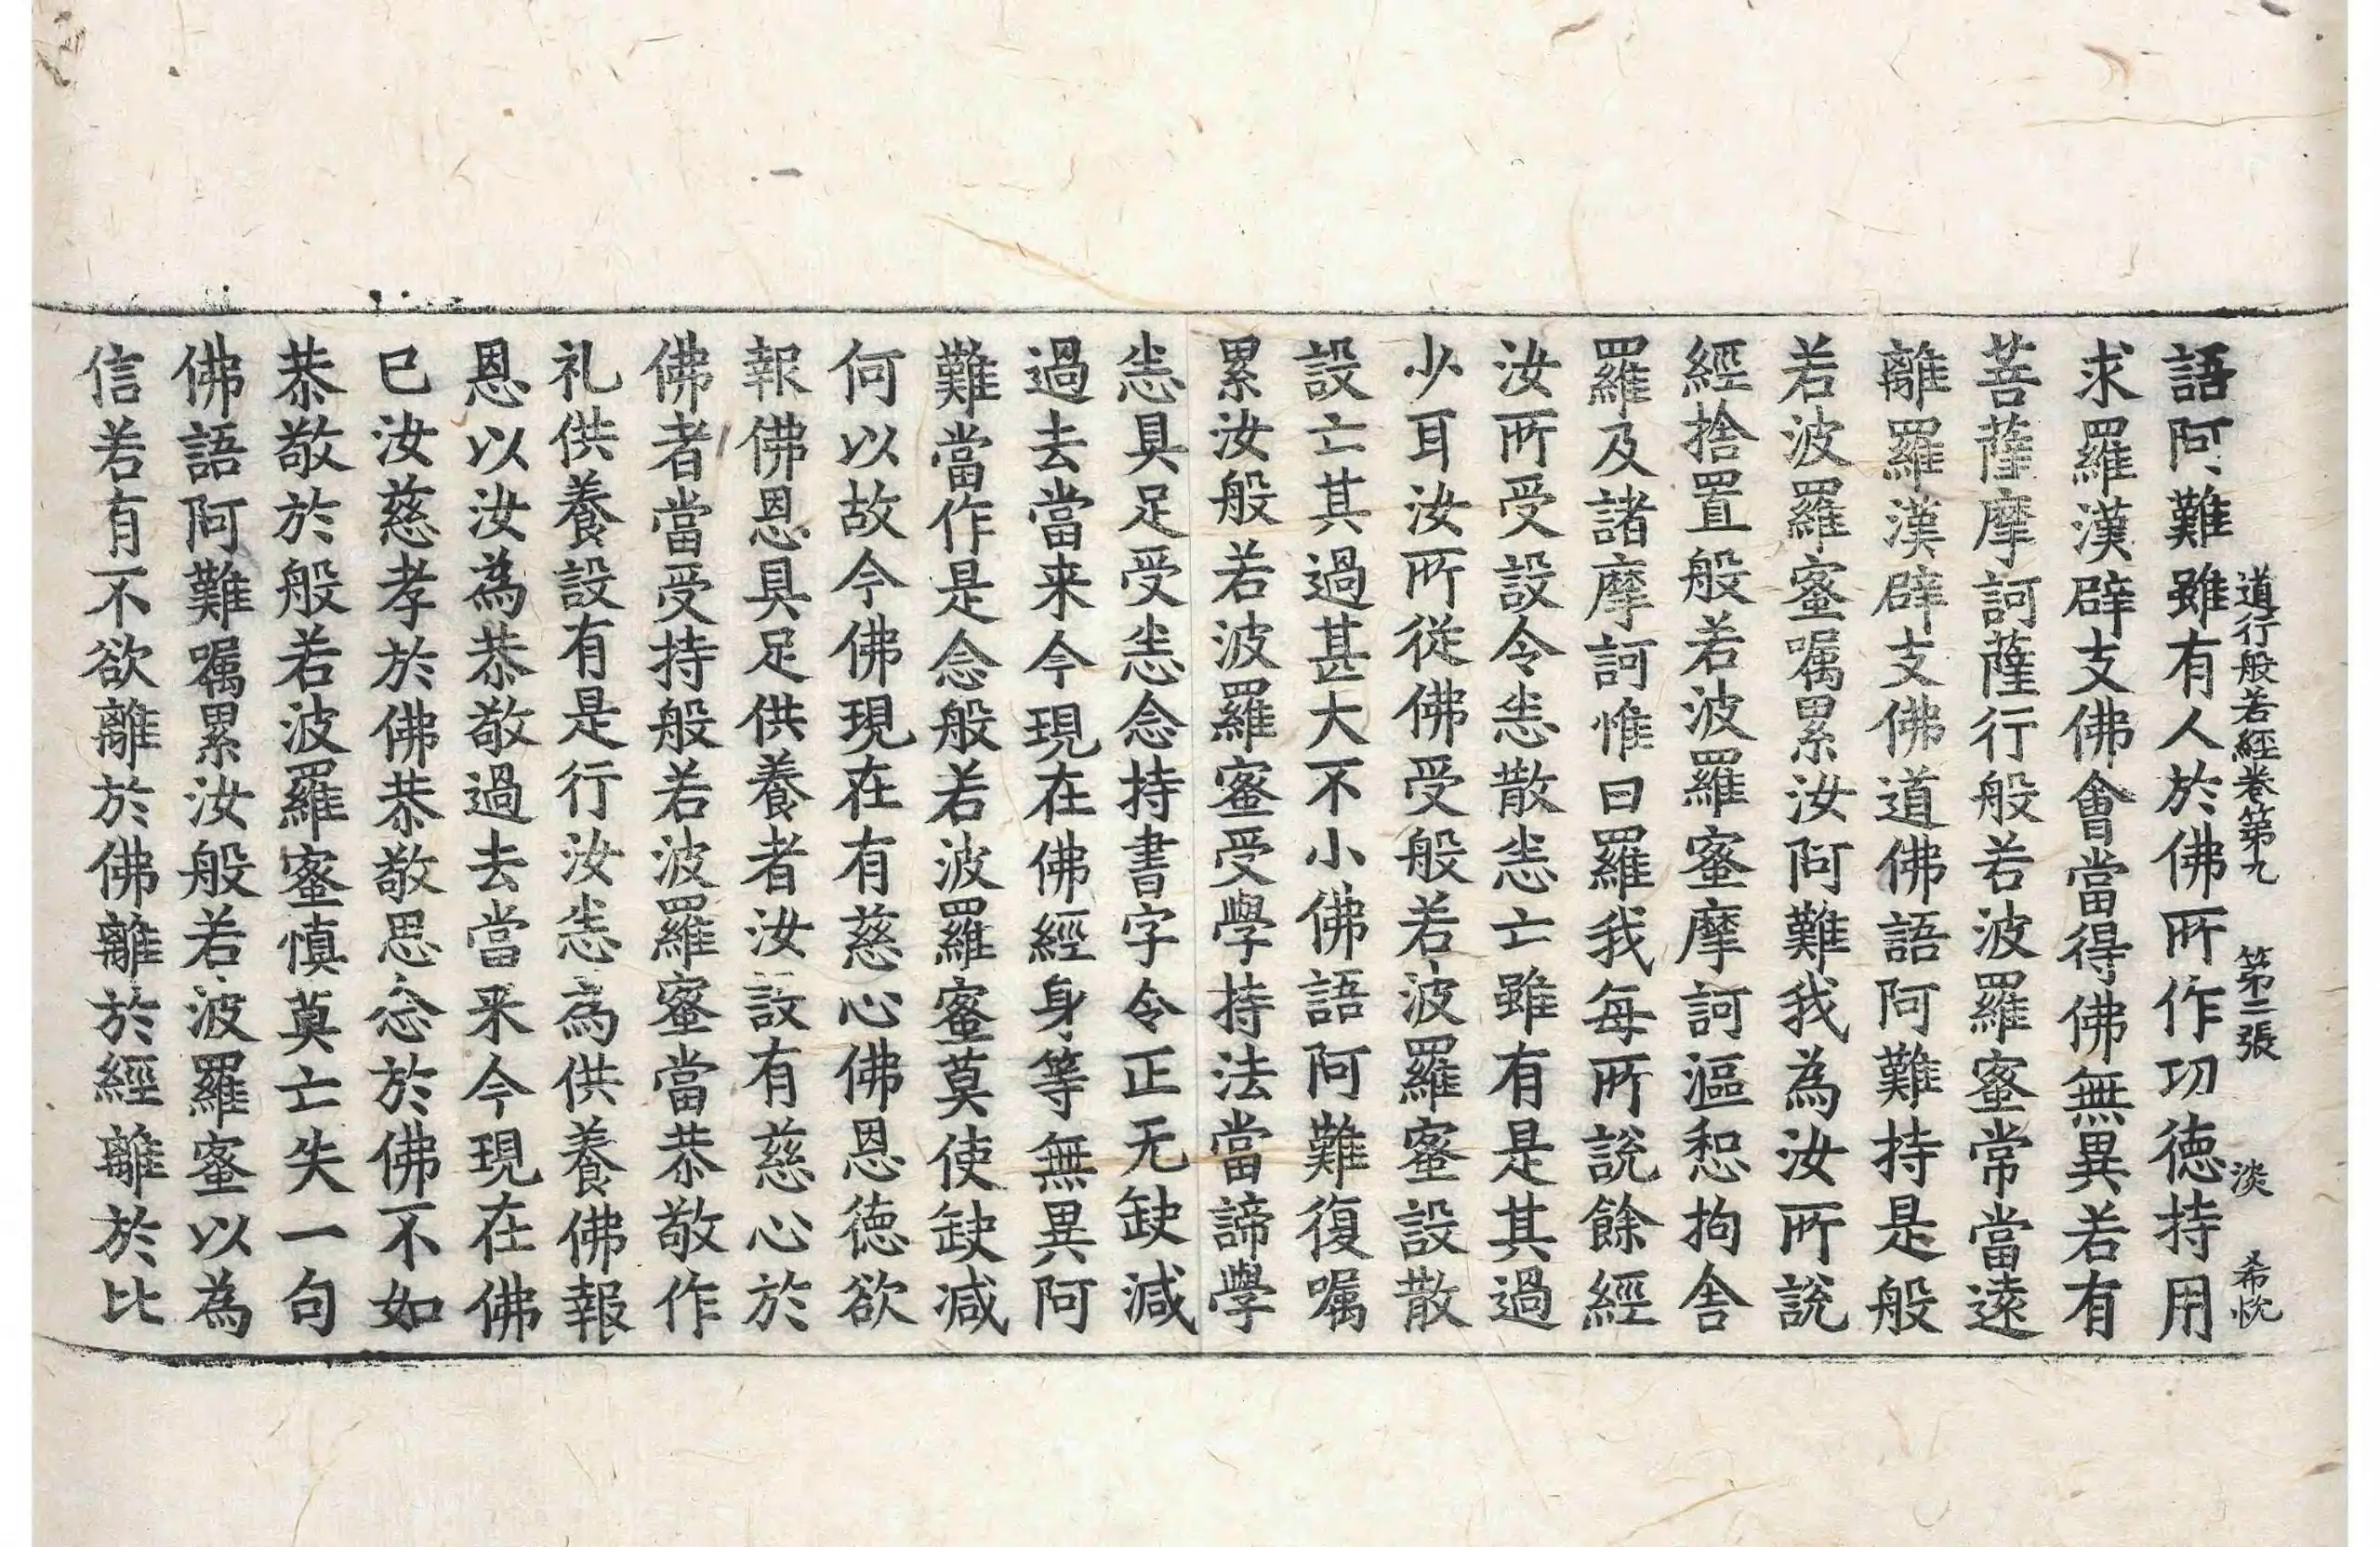 道行般若經卷第九 第二張 淡 希忱
語阿難雖有人於佛所作功德持用
求羅漢辟支佛會當得佛無異若有
菩薩摩訶薩行般若波羅蜜常當遠
離羅漢辟支佛道佛語阿難持是般
若波羅蜜嘱累汝阿難我為汝所說
經捨置般若波羅蜜摩訶漚惒拘舍
羅及諸摩訶惟曰羅我每所說餘經
汝所受設令恙散恙亡雖有是其過
少耳汝所從佛受般若波羅蜜設散
設亡其過甚大不小佛語阿難復嘱
累汝般若波羅蜜受學持法當諦學
恙具足受恙念持書字令正无缺減
過去當来今現在佛經身等無異阿
難當作是念般若波羅蜜莫使缺减
何以故今佛現在有慈心佛恩德欲
報佛恩具足供養者汝設有慈心於
佛者當受持般若波羅蜜當恭敬作
礼供養設有是行汝恙為供養佛報
恩以汝為恭敬過去當来今現在佛
已汝慈孝於佛恭敬思念於佛不如
恭敬於般若波羅蜜慎莫亡失一句
佛語阿難嘱累汝般若波羅蜜以為
信若有不欲離於佛離於經離於比